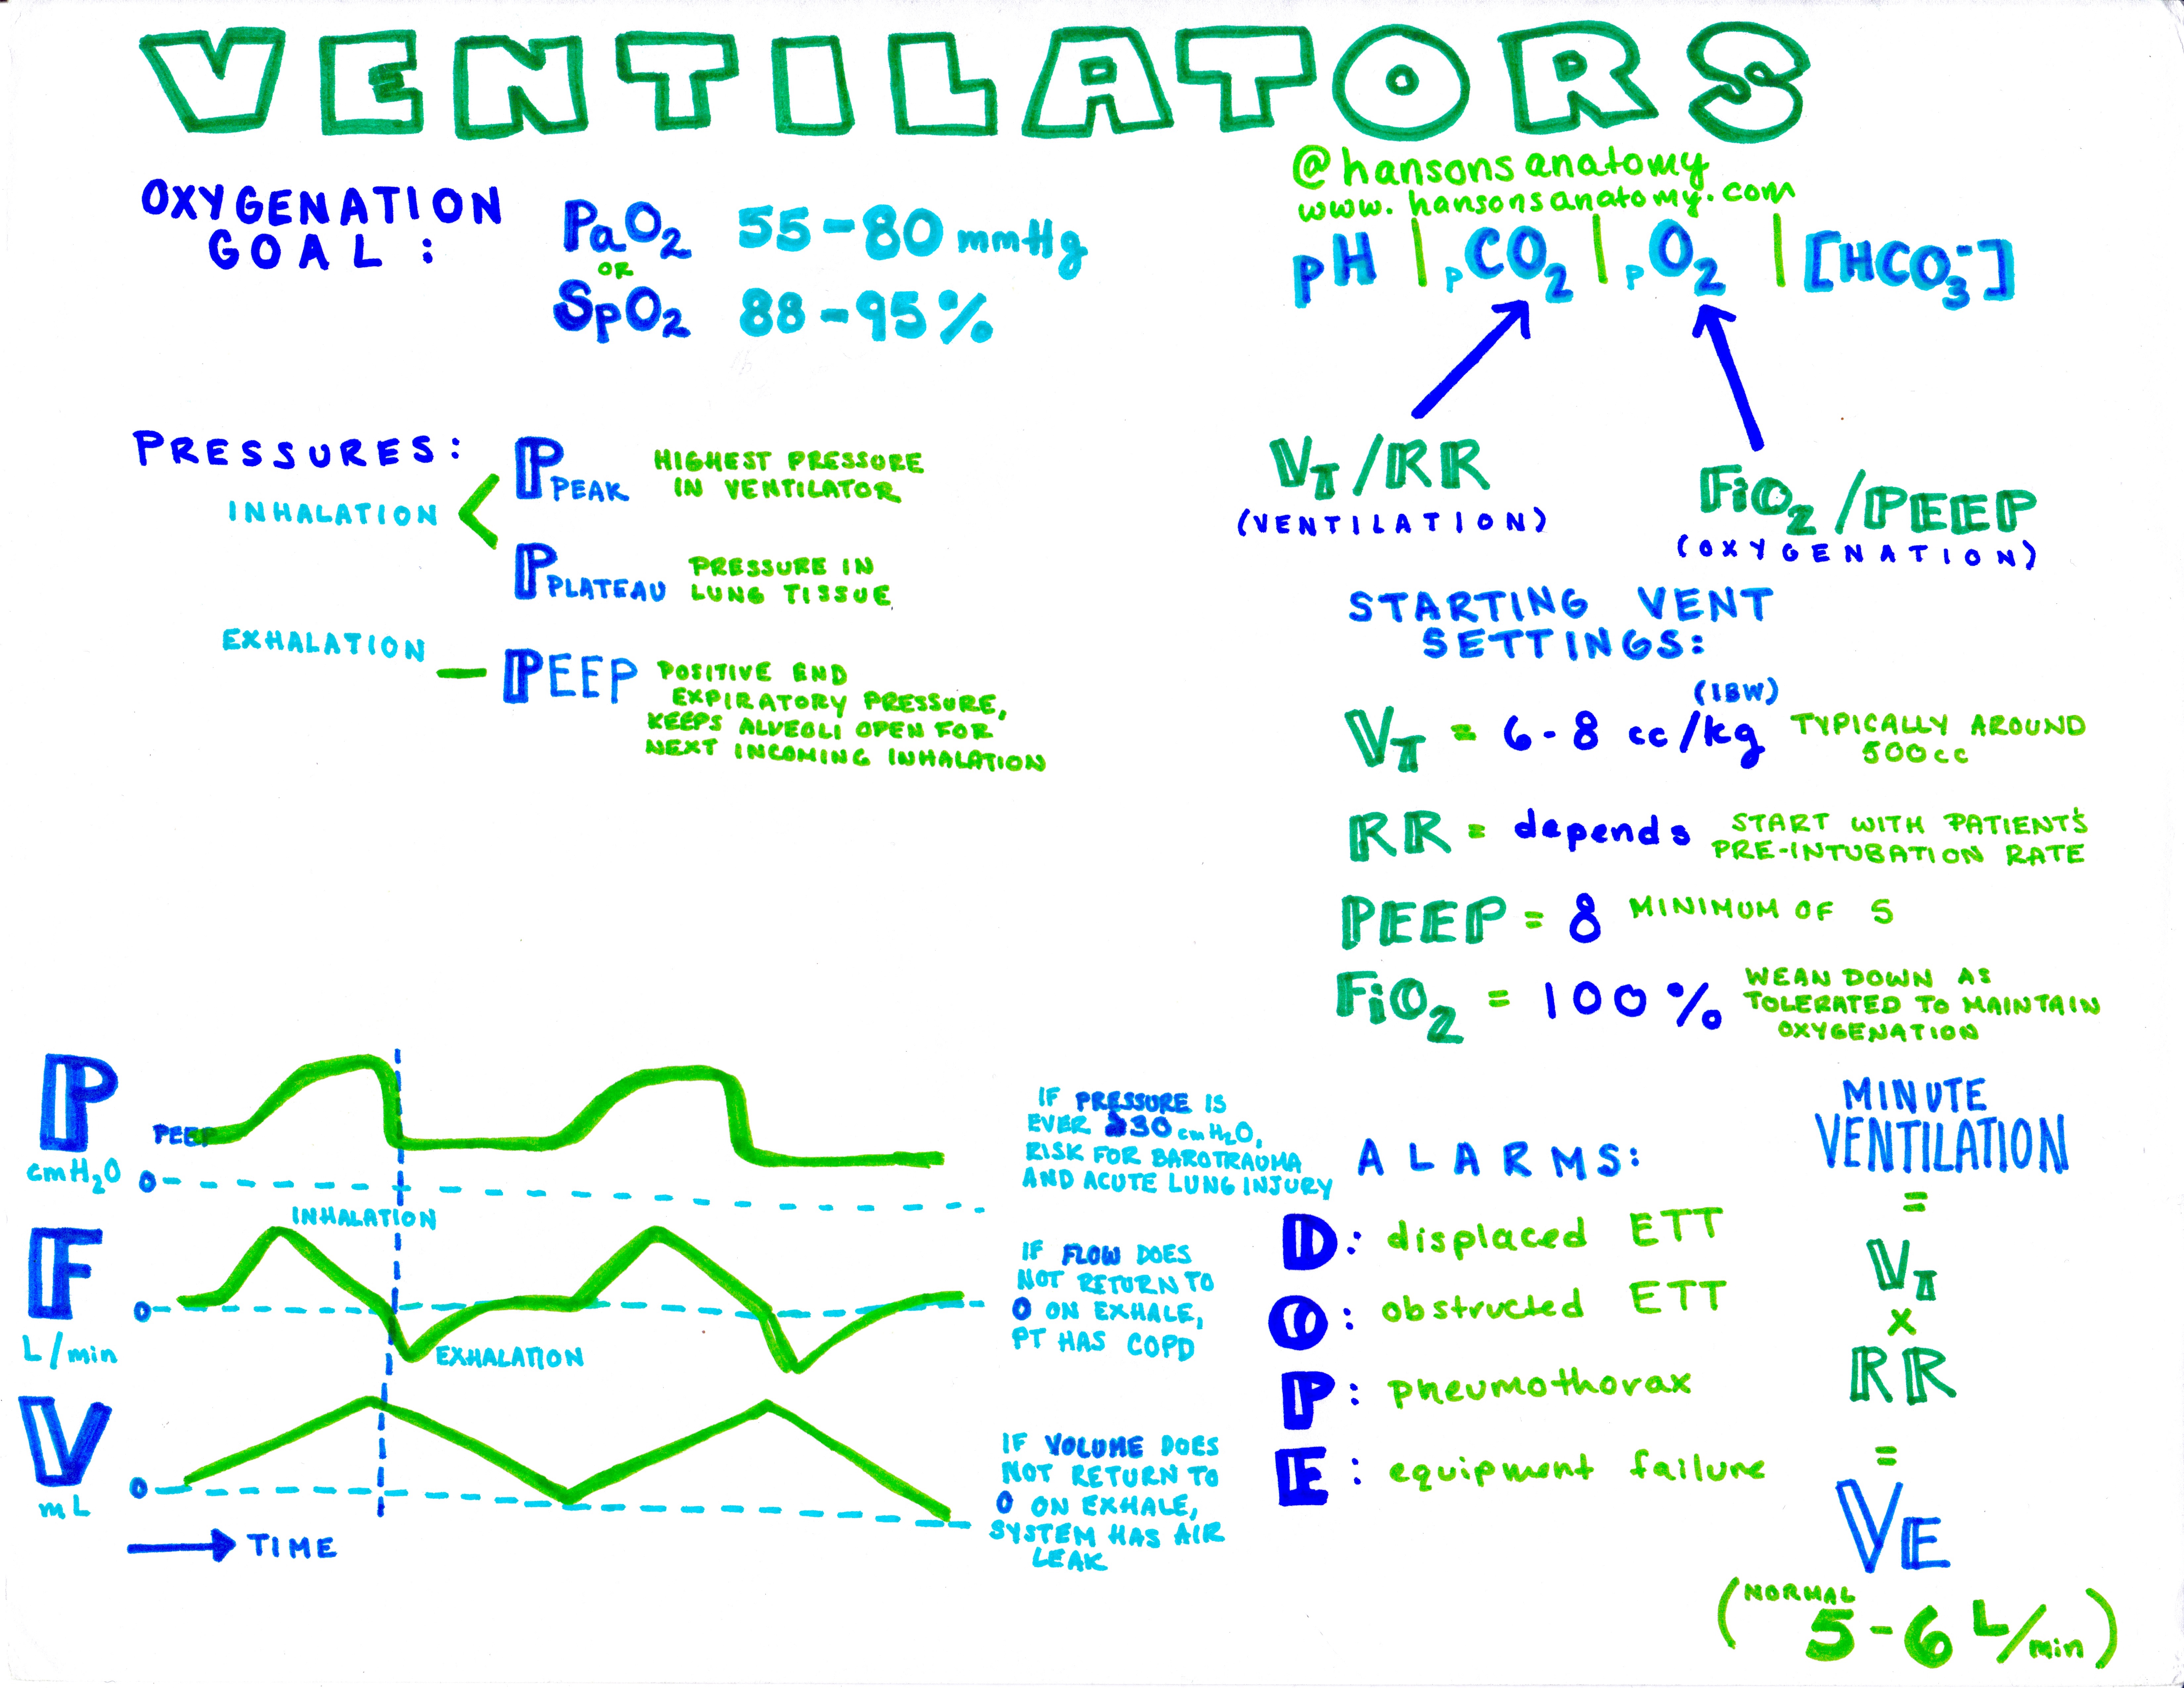 VENTILATORS
@hansonsanatomy
www.hansonsanatomy.com
OXYGENATION
GOAL:
PaO2 55-80 mmHg
OR
SpO2 88-95%
pH | pCO2 | pO2 | [HCO3-]
VT/RR
(VENTILATION)
FiO2/PEEP
(OXYGENATION)
PRESSURES:
INHALATION
PPEAK
HIGHEST PRESSURE
IN VENTILATOR
PPLATEAU
PRESSURE IN
LUNG TISSUE
EXHALATION
PEEP
POSITIVE END
EXPIRATORY PRESSURE,
KEEPS ALVEOLI OPEN FOR
NEXT INCOMING INHALATION
STARTING VENT
SETTINGS:
(IBW)
VT = 6-8 cc/kg
TYPICALLY AROUND
500cc
RR = depends
START WITH PATIENT'S
PRE-INTUBATION RATE
PEEP = 8 MINIMUM OF 5
FiO2 = 100%
WEAN DOWN AS
TOLERATED TO MAINTAIN
OXYGENATION
P
cmH2O
PEEP
0
INHALATION
F
L/min
0
EXHALATION
V
mL
0
TIME
IF PRESSURE IS
EVER 30 cmH2O,
RISK FOR BAROTRAUMA
AND ACUTE LUNG INJURY
IF FLOW DOES
NOT RETURN TO
0 ON EXHALE,
PT HAS COPD
IF VOLUME DOES
NOT RETURN TO
0 ON EXHALE,
SYSTEM HAS AIR
LEAK
ALARMS:
D: displaced ETT
O: obstructed ETT
P: pneumothorax
E: equipment failure
MINUTE
VENTILATION
=
VT
x
RR
=
VE
(NORMAL
5-6 L/min)